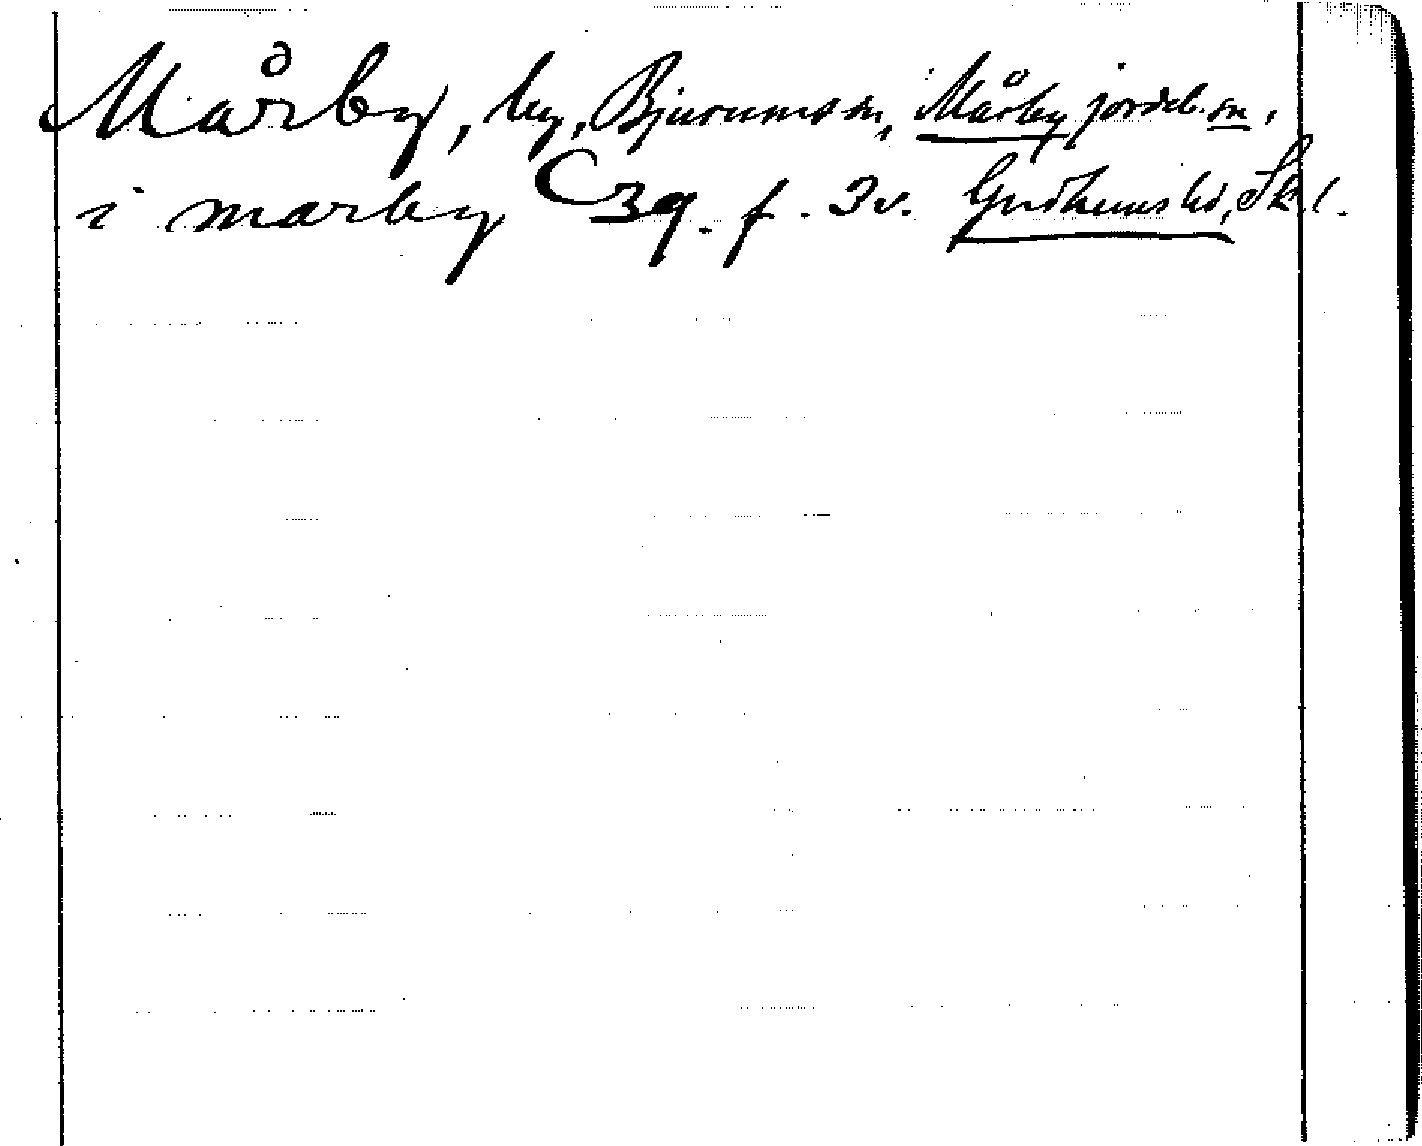 Mårby, by, Bjurums sn, Mårby jordeb.sn,
i marby C 39. f. 3v. Gudhems hd, Sk. l.